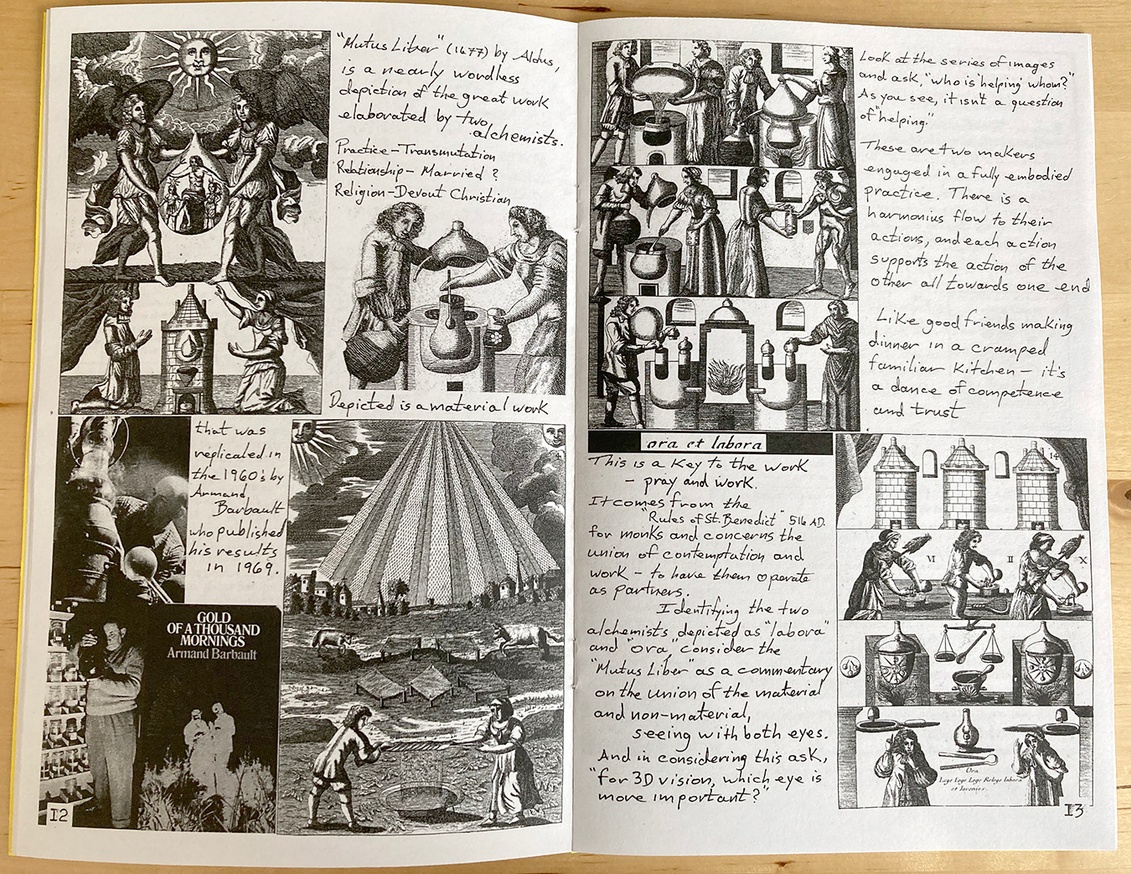 "Mutus Liber" (1677) by Aldus,
is a nearly wordless
depiction of the great work
elaborated by two
alchemists.
Practice - Transmutation
Relationship - Married ?
Religion - Devout Christian
Depicted is a material work
that was
replicated in
the 1960's by
Armand
Barbault
who published
his results
in 1969.
GOLD
OF A THOUSAND
MORNINGS
Armand Barbault
12
Look at the series of images
and ask, "who is 'helping' whom?"
As you see, it isn't a question
of "helping."
These are two makers
engaged in a fully embodied
practice. There is a
harmonius flow to their
actions, and each action
supports the action of the
other all towards one end
Like good friends making
dinner in a cramped
familiar kitchen - it's
a dance of competence
and trust
ora et labora
This is a key to the work
- pray and work.
It comes from the
"Rules of St. Benedict" 516 AD.
for monks and concerns the
union of contemptation and
work - to have them operate
as partners.
Identifying the two
alchemists depicted as "labora"
and ora, consider the
"Mutus Liber" as a commentary
on the union of the material
and non-material,
seeing with both eyes.
And in considering this ask,
"for 3D vision, which eye is
more important?"
14
VI II X
Ora
Lege Lege Lege Relege labora
et Invenies.
13